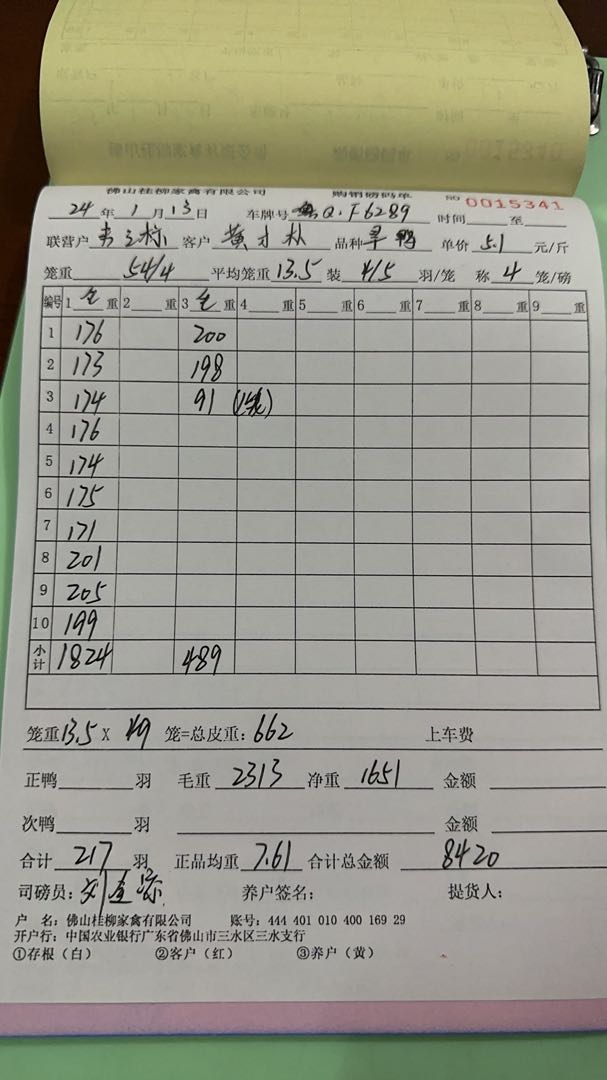 佛山桂柳家禽有限公司 购销磅码单 NO 0015341
24 年 1 月 13 日 车牌号 Q.F6289 时间 至
联营户 客户 黄才林 品种 旱鸭 单价 5.1 元/斤
笼重 54/4 平均笼重 13.5 装 4/5 羽/笼 称 4 笼/磅
编号 1 毛 重 2 重 3 毛 重 4 重 5 重 6 重 7 重 8 重 9 重
1 176 200
2 173 198
3 174 91
4 176
5 174
6 175
7 171
8 201
9 205
10 199
小计 1824 489
笼重 13.5 X 49 笼=总皮重: 662 上车费
正鸭 羽 毛重 2313 净重 1651 金额
次鸭 羽 金额
合计 217 羽 正品均重 7.61 合计总金额 8420
司磅员: 养户签名: 提货人:
户 名: 佛山桂柳家禽有限公司 账号: 444 401 010 400 169 29
开户行: 中国农业银行广东省佛山市三水区三水支行
①存根（白） ②客户（红） ③养户（黄）